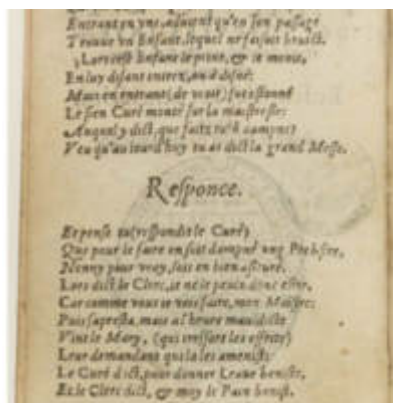 Entrant en une, advient qu'en son passage
Trouve un Enfant, lequel ne faisoit bruict.
Lors cest Enfant le print, & le meine,
En luy disant
Mais en entrant (de voir) fut estonné
Le sien Curé monté sur la maistresse:
Auquel y dict, que faitz tu là
Veu qu'au iourd'huy tu as dict la grand Messe.
Responce.
Et pense tu (respondit le Curé)
Que pour le faire on soit dampné ung Prebstre,
Nenny pour vray, sois en bien asseuré.
Lors dict le Clerc, ie ne le peulx donc estre,
Car comme vous ie vois faire, mon Maistre:
Puis s'apresta, mais à l'heure mauldicte
Vint le Mary, (qui
Leur demandant qui la les
Le Curé dict, pour donner l'eaue beniste,
Et le Clerc dict, & moy le Pain benist.